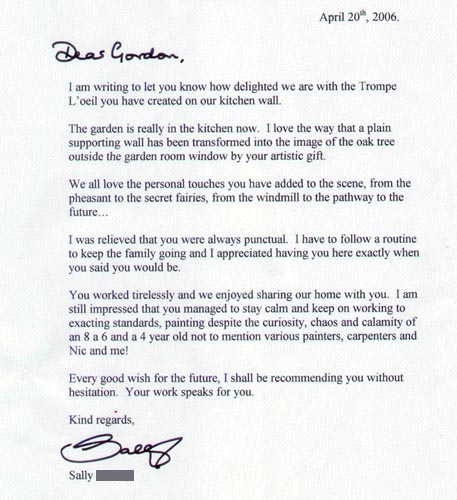 April 20th, 2006.
Dear Gordon,
I am writing to let you know how delighted we are with the Trompe
L'oeil you have created on our kitchen wall.
The garden is really in the kitchen now. I love the way that a plain
supporting wall has been transformed into the image of the oak tree
outside the garden room window by your artistic gift.
We all love the personal touches you have added to the scene, from the
pheasant to the secret fairies, from the windmill to the pathway to the
future…
I was relieved that you were always punctual. I have to follow a routine
to keep the family going and I appreciated having you here exactly when
you said you would be.
You worked tirelessly and we enjoyed sharing our home with you. I am
still impressed that you managed to stay calm and keep on working to
exacting standards, painting despite the curiosity, chaos and calamity of
an 8 a 6 and a 4 year old not to mention various painters, carpenters and
Nic and me!
Every good wish for the future, I shall be recommending you without
hesitation. Your work speaks for you.
Kind regards,
Sally
Sally